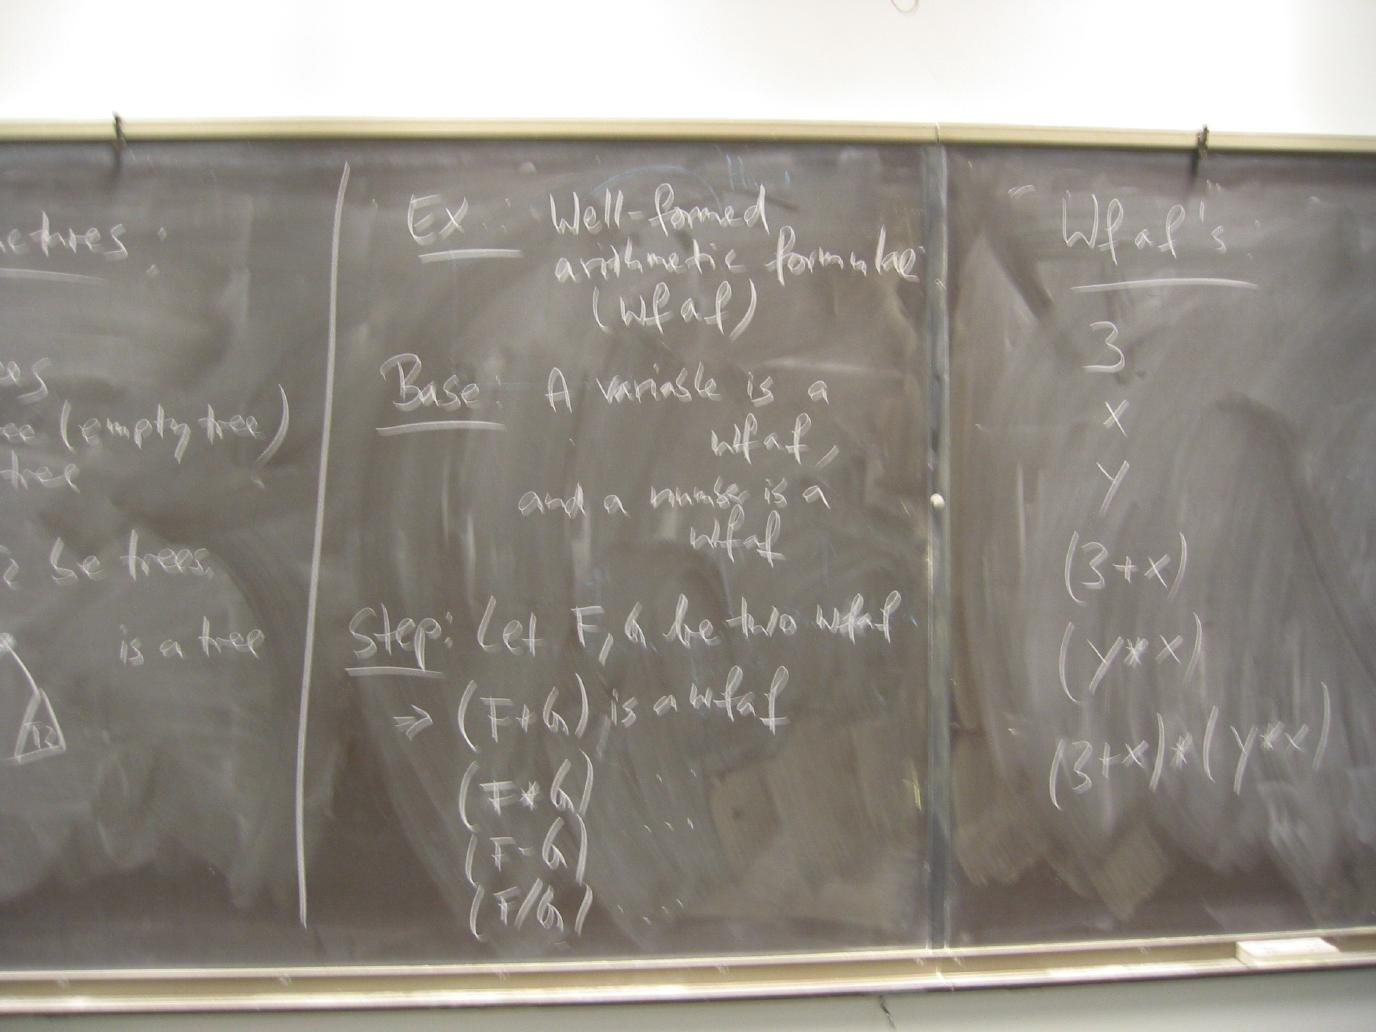 : (empty tree)
tree
be trees,
is a tree
Ex: Well-formed
arithmetic formulae
(wfaf)
Base: A variable is a
wfaf,
and a number is a
wfaf
Step: Let F, G be two wfaf
⇒ (F+G) is a wfaf
(F*G) ....
(F-G) ....
(F/G) ....
Wfaf's:
3
x
y
(3+x)
(y*x)
(3+x)*(y*x)